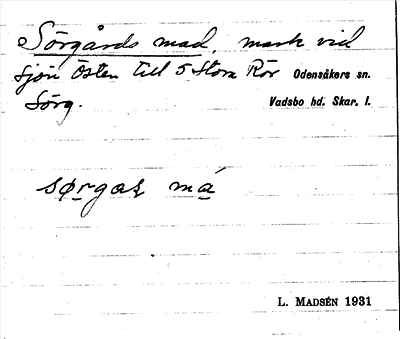 Sörgårds mad, mark vid
sjön Östen till 5 Stora Rör Odensåkers sn.
Sörg. Vadsbo hd. Skar. l.
sørgas má
L. MADSÉN 1931